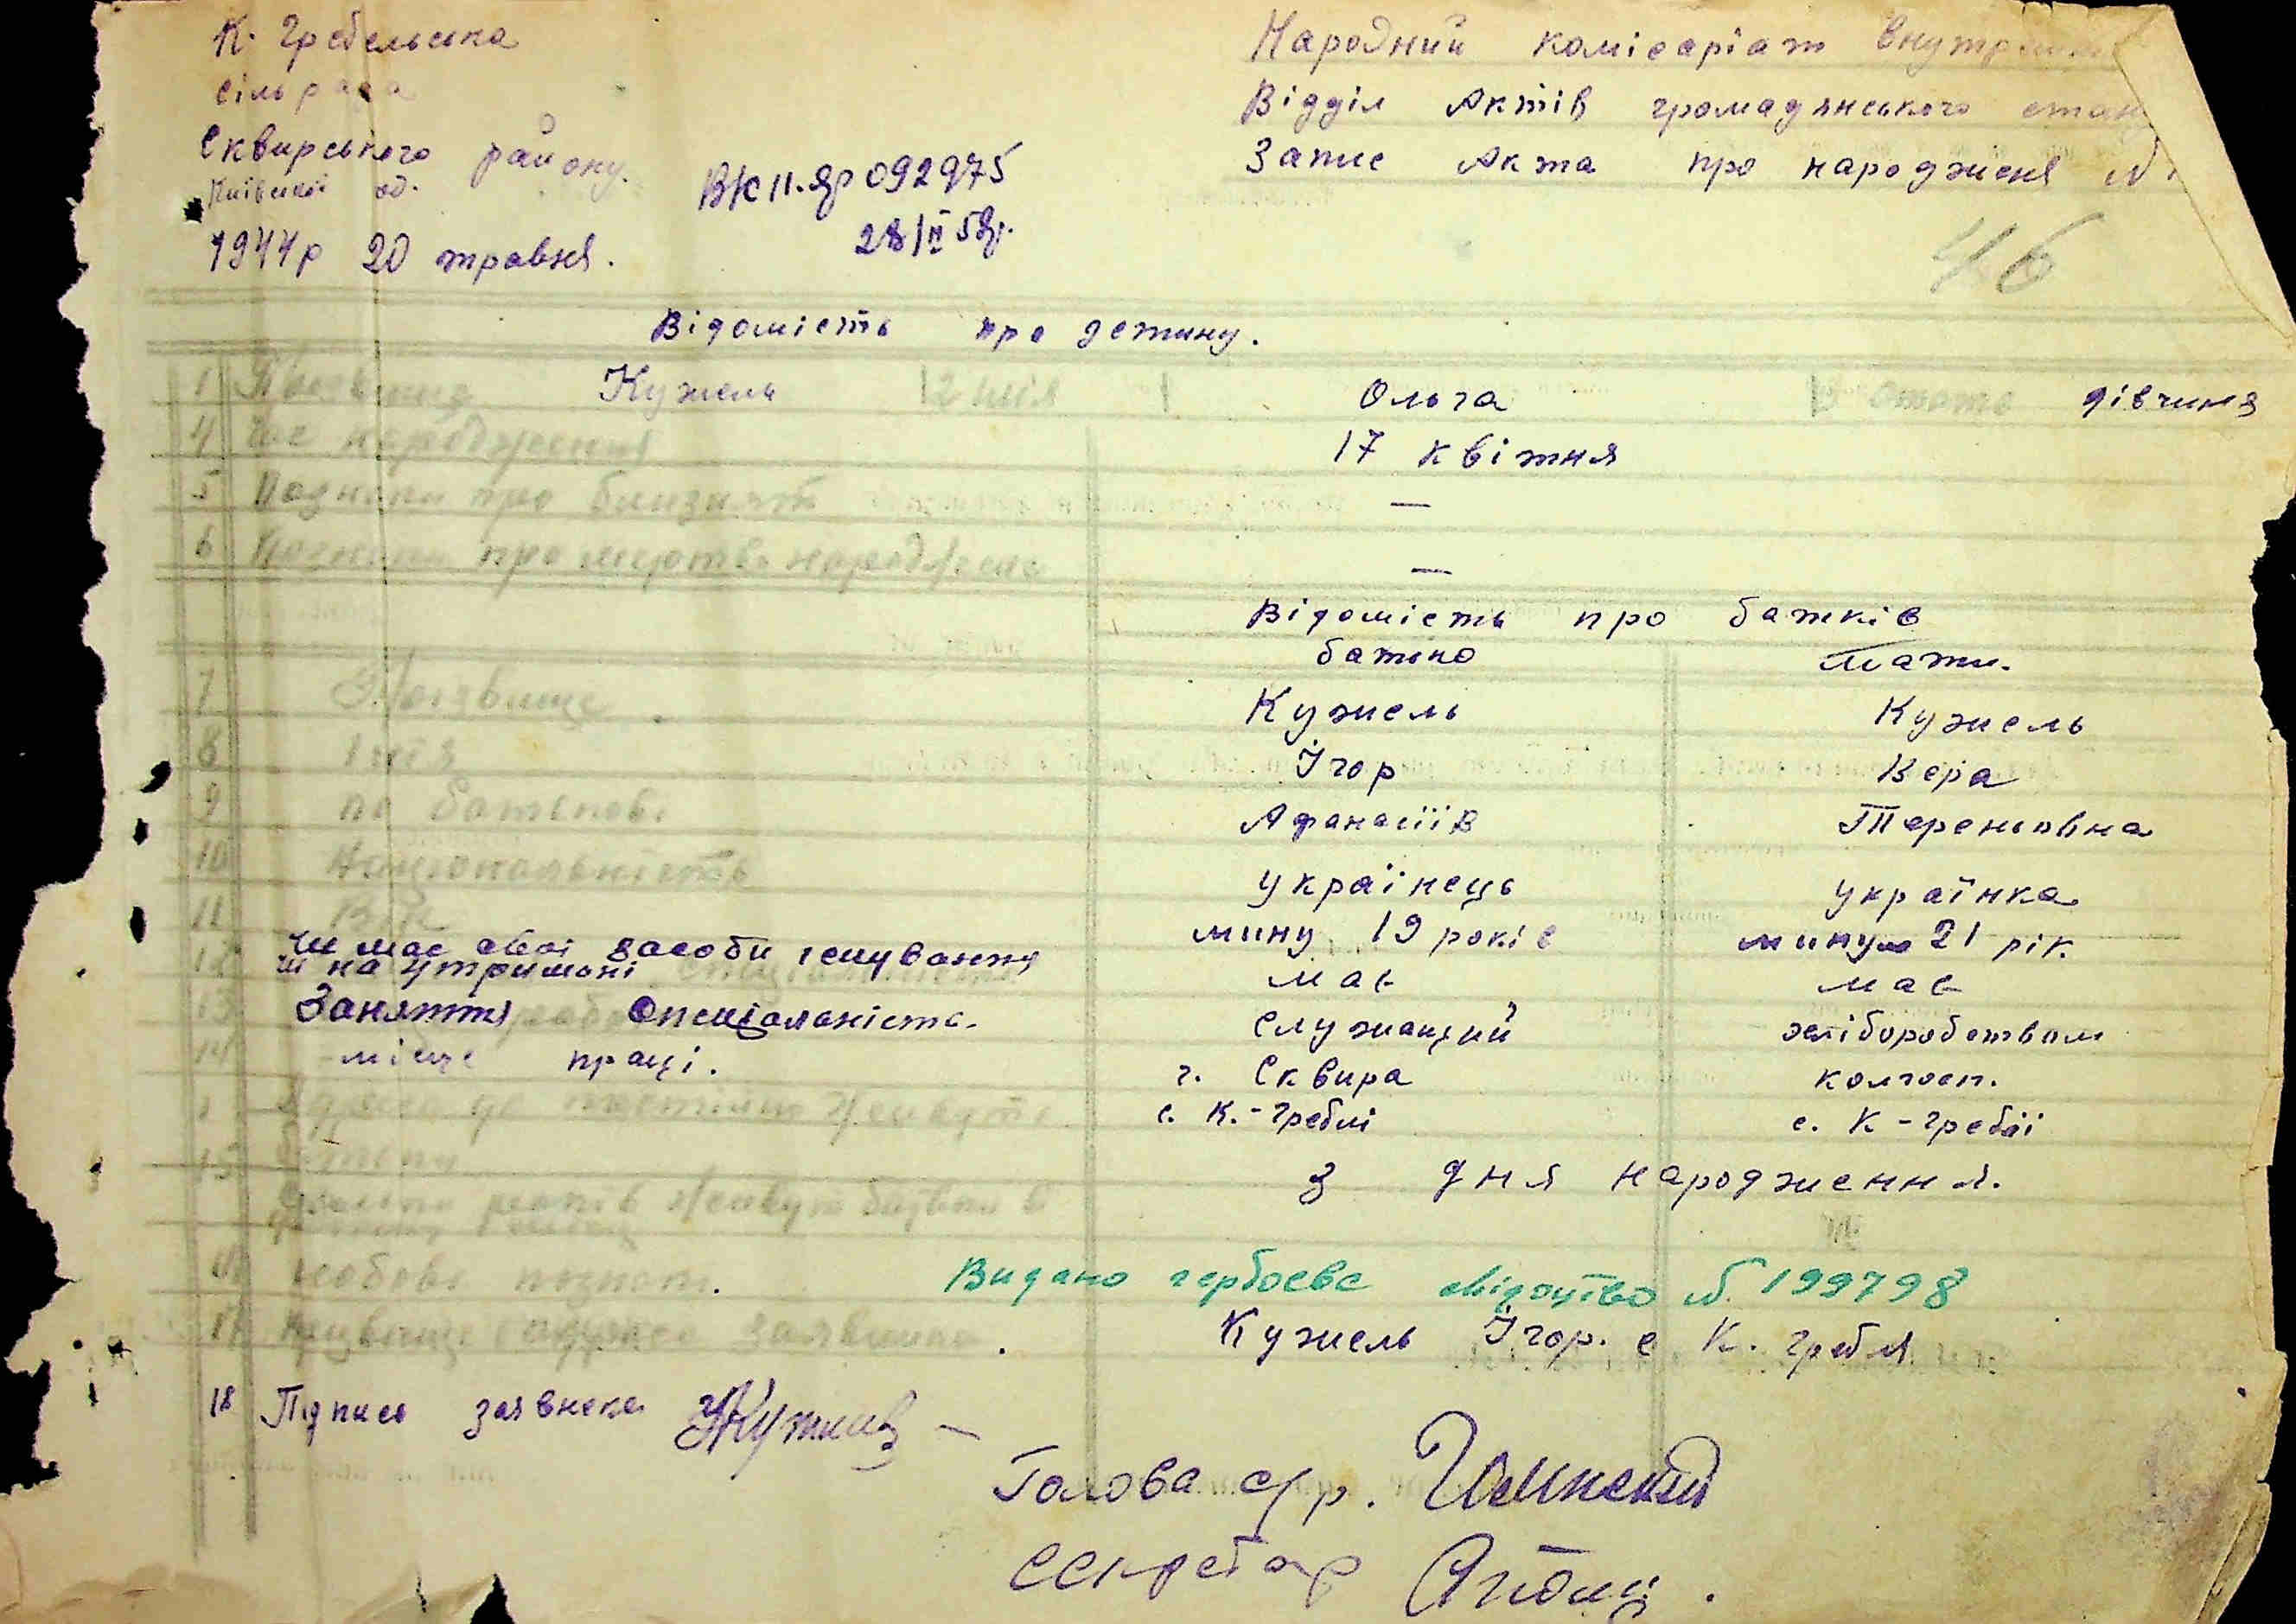 К. Гребельська
сільрада
Сквирського району.
Київської об.
1944р 20 травня.
ВК II. яр 092975
28/II 58р.
Народний комісаріат внутрішн
Відділ Актів громадянського стану
Запис Акта про народженя №
46
Відомість про детину.
1 Прізвище Кужель 2 імя Ольга 3 стать дівчина
4 Час народження 17 квітня
5 Позначки про близнят —
6 Позначки про мертво народжене —
Відомість про батків
батько мати.
7 Прізвище Кужель Кужель
8 Імя Ігор Вера
9 по батькові Афанасіїв Терентовна
10 Національність українець українка
11 Вік мину 19 років минуло 21 рік.
12 чи має свої засоби існування має має
чи на утримані
13 Заняття Спеціальність. служащий хліборобством
14 місце праці. г. Сквира колгосп.
Адреса де постійно живуть с. К.-Греблі с. К-Греблі
15 батьки
Скільки років живуть батьки в з дня народження.
16 особові познач. Видано гербове свідоцтво № 199798
17 Прізвище і адреса заявника. Кужель Ігор. с К. Гребля
18 Підпись заявнека
Голова с/р.
Секретар